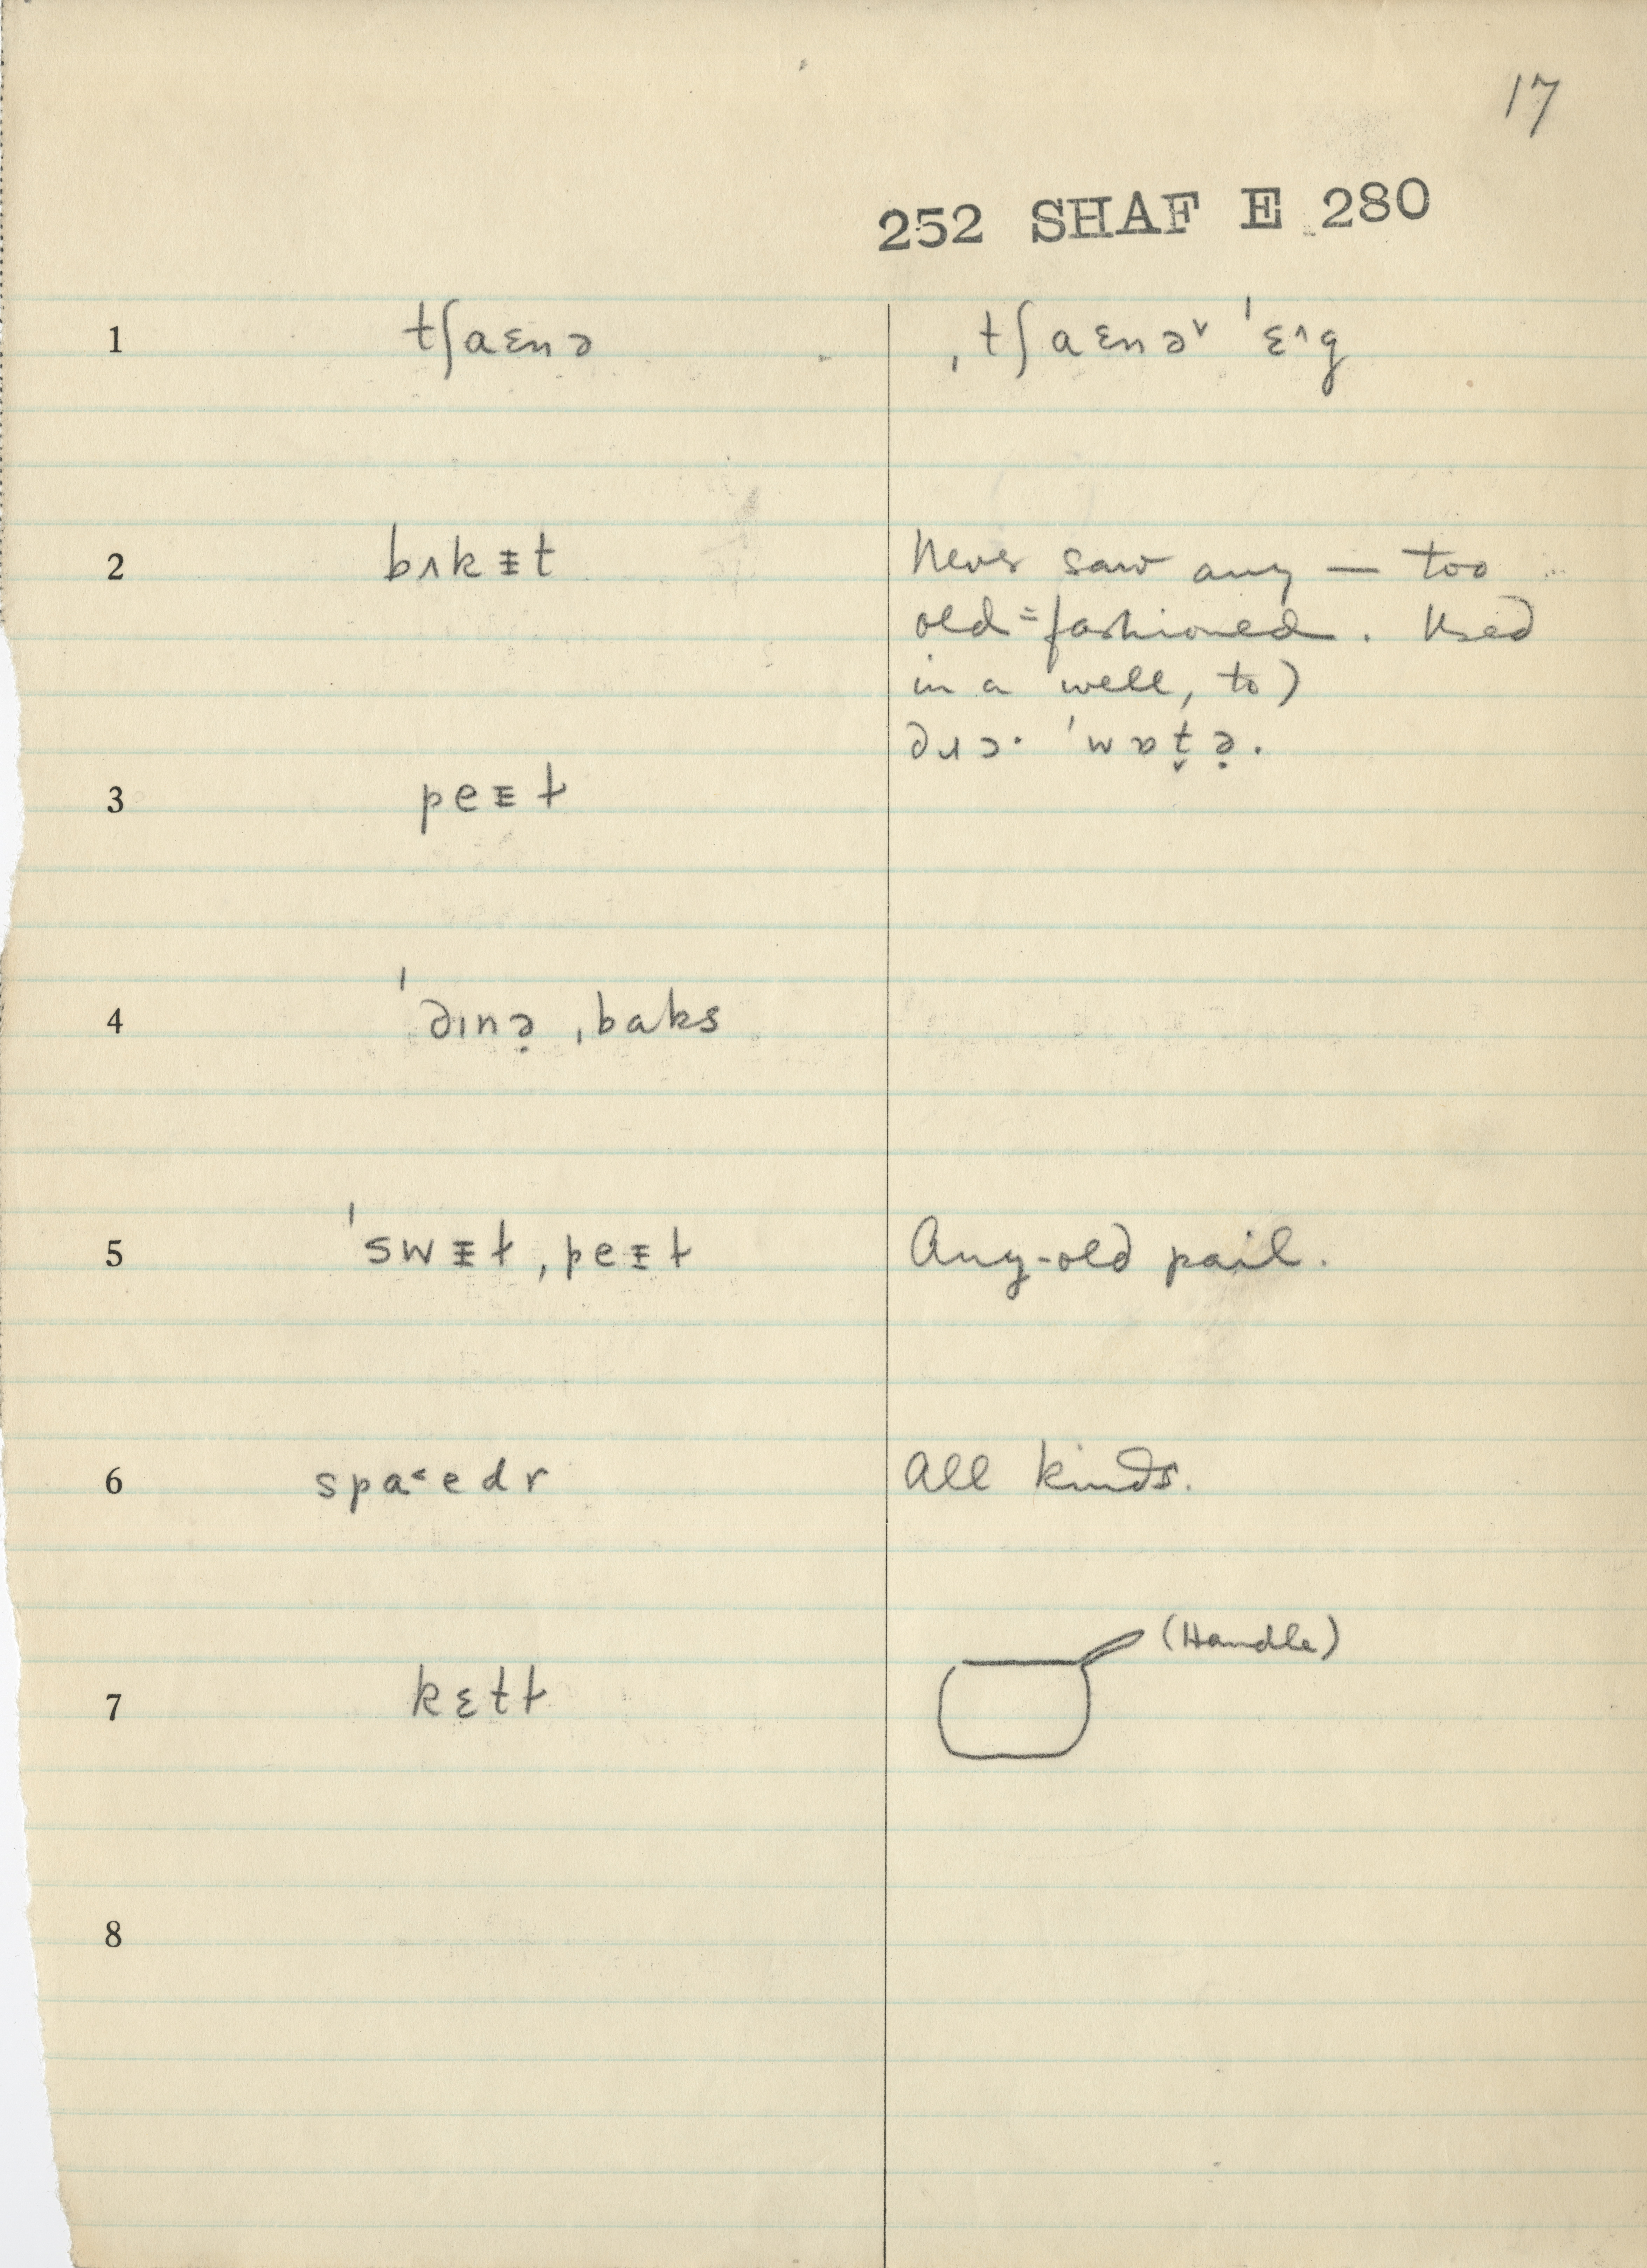 17
252 SHAF E 280
1 tʃaɛnə ˌtʃaɛnə˅ ˈɛ˄g
2 bʌkᵻt Never saw any — too
old=fashioned. Used
in a well, to)
dɹɔ· ˈwɒt̬ə̣.
3 peᵻɫ
4 ˈdɪnə̣ ˌbaks
5 ˈswᵻɫ ˌpeᵻɫ Any-old pail.
6 spa˂edr All kinds.
7 kɛtɫ (Handle)
8